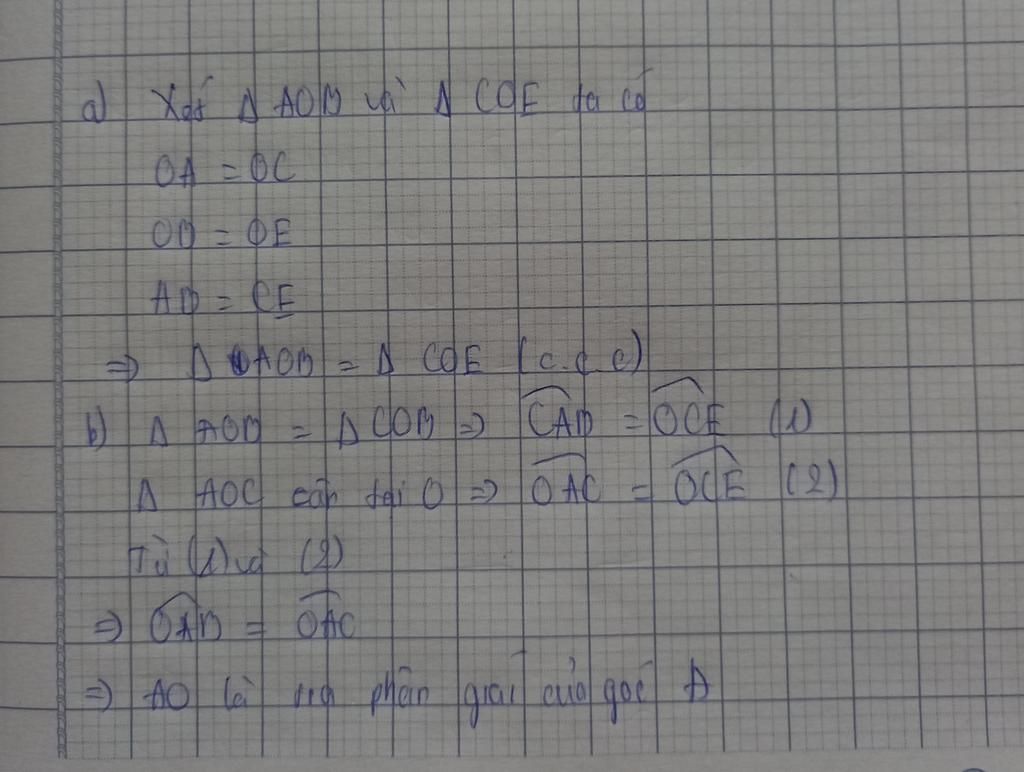 a) Xét Δ AOB và Δ COE ta có
OA = OC
OB = OE
AB = CE
=> Δ AOB = Δ COE (c.c.c)
b) Δ AOB = Δ COB => CAB = OCE (1)
Δ AOC cân tại O => OAC = OCE (2)
Từ (1) và (2)
=> OAB = OAC
=> AO là phân giác của góc A